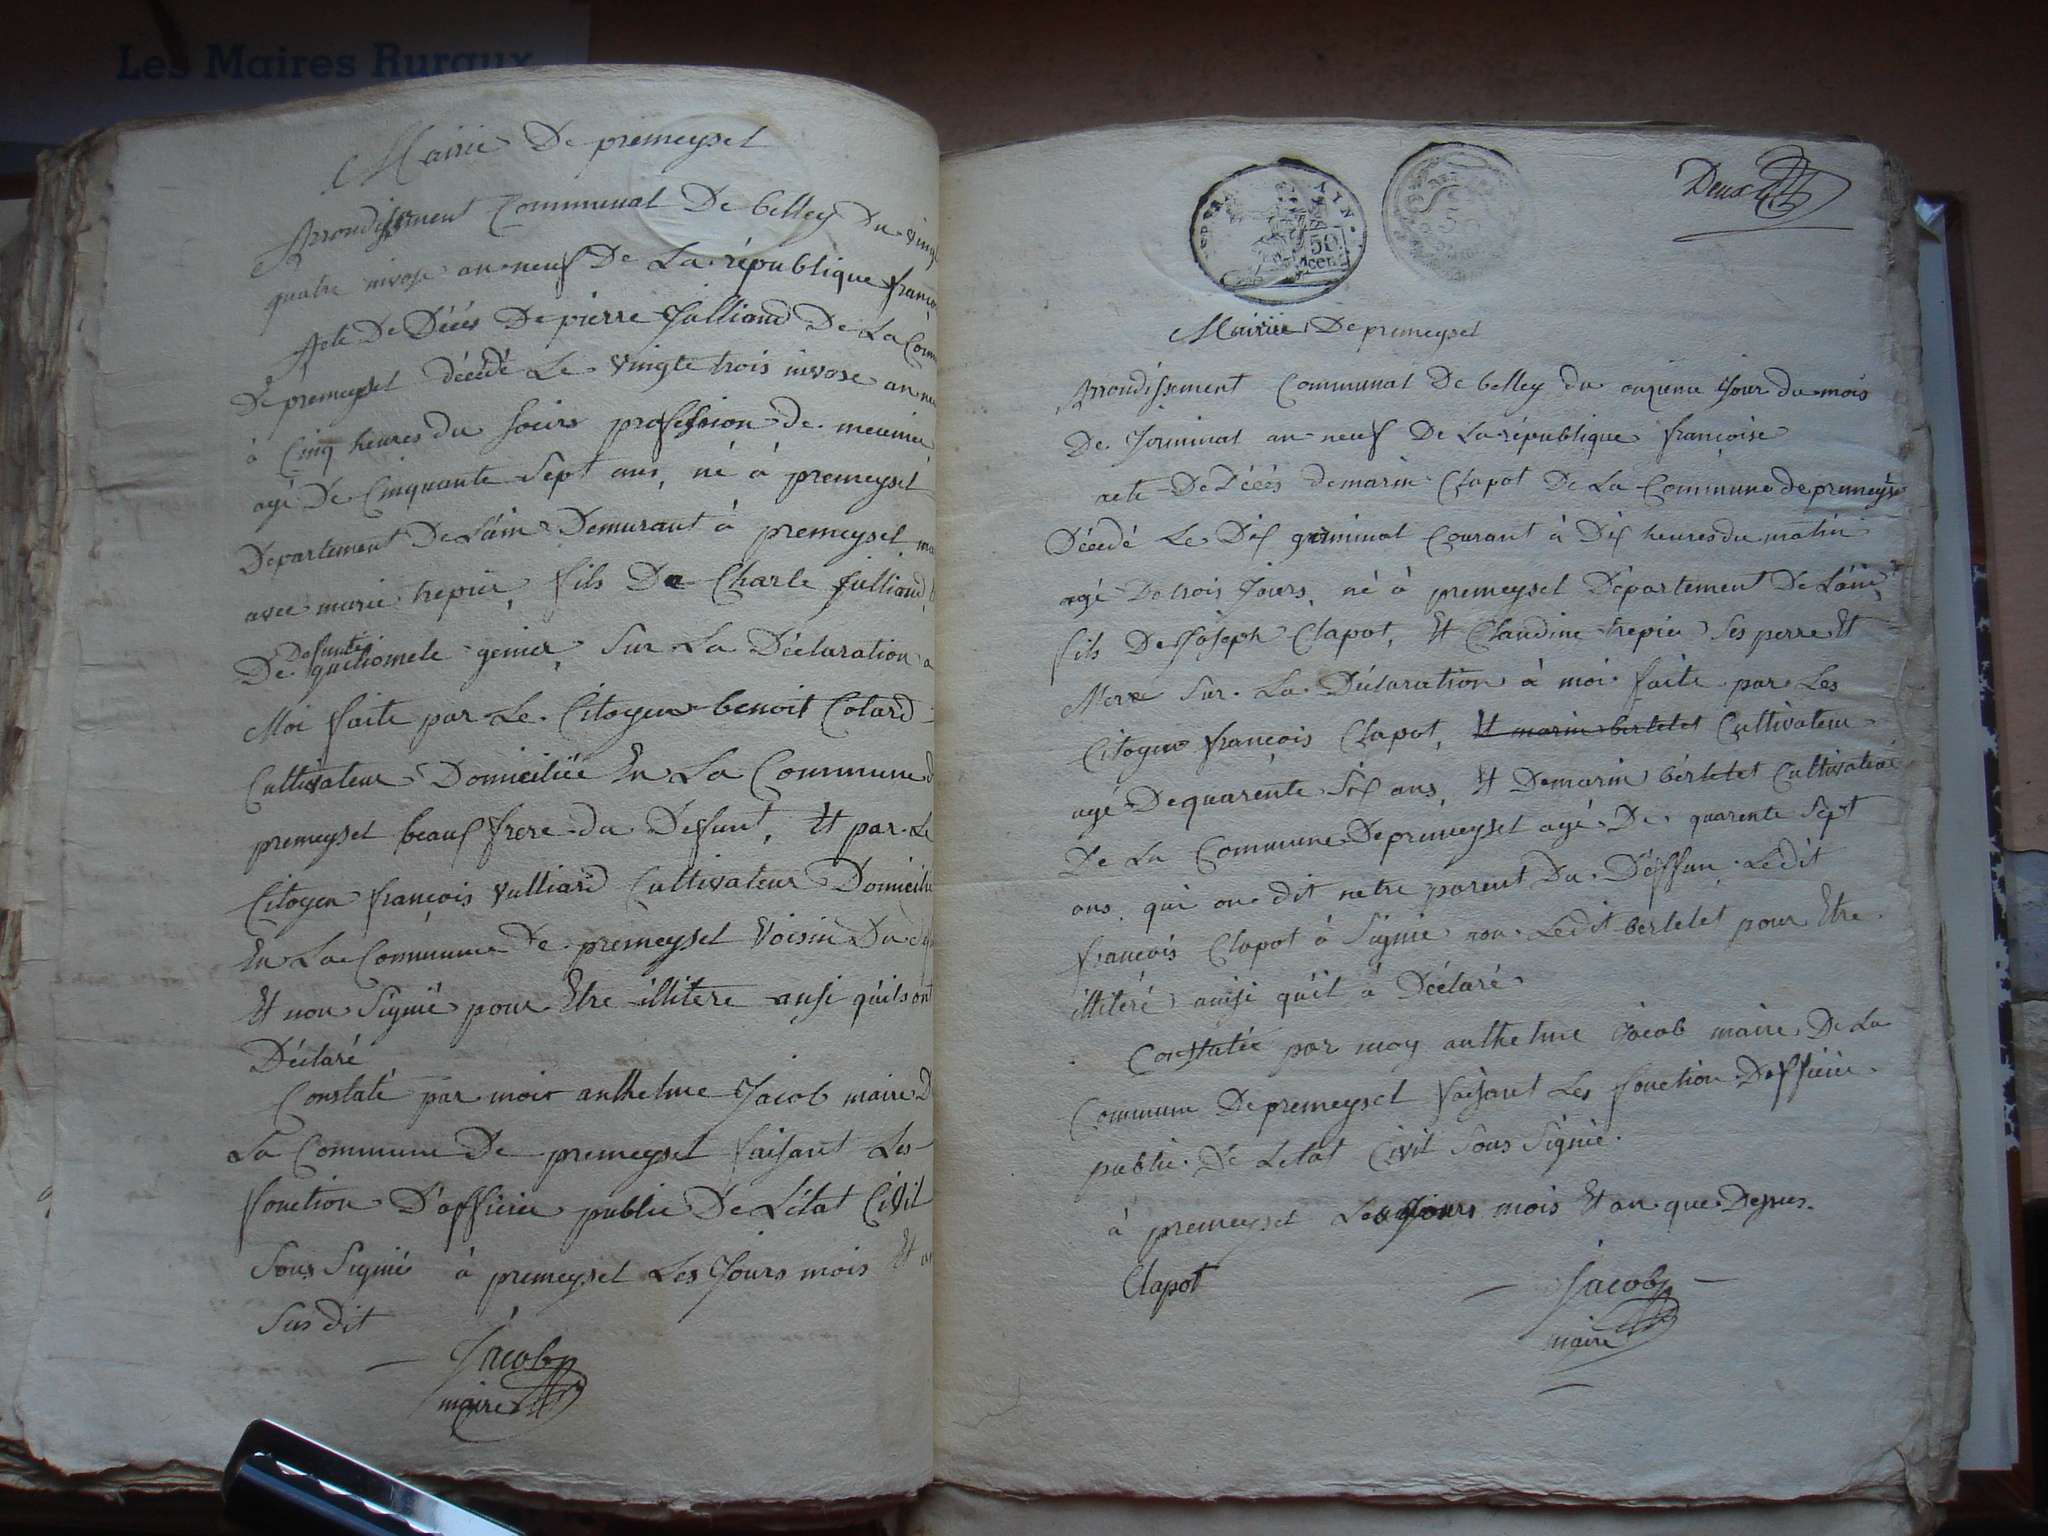 Les Maires Ruraux
Mairie De premeysel
Arrondissement Communal De belley Du vingt
quatre nivose an neuf De La république franco
Acte De Décés De pierre Julliand De La Comm
De premeysel décédé Le vingte trois nivose an neu
à Cinq heures du soire profession de meunier
agé De Cinquante Sept ans, né à premeysel
Departement De L'ain Demurant à premeysel ma
avec marie trepier, fils De Charle Julliand,
Defunte
De genier, Sur La Déclaration a
Moi faite par Le Citoyen benoit Cotard
Cultivateur Domiciliée En La Commune d
premeysel beauf frere du Defunt, Et par Le
Citoyen françois vulliard Cultivateur Domicilie
En La Commune De premeysel Voisin Du def
Et non Signié pour Etre illitere ansi quils ont
Déclaré
Constaté par moi anthelme Jacob maire D
La Commune De premeysel faisant Les
fonction D'officier public De L'état Civil
Sous Signié à premeysel Les Jours mois Et an
Sus dit
Jacob
maire
AIN
50
cen
50
Deux
Mairie De premeysel
Arrondissement Communal De belley du onzieme Jour du mois
De Jerminal an neuf De La république françoise
acte De Décés de marin Clapot De La Commune de premeysel
Décédé Le Dix germinal Courant à Dix heures du matin
agé De trois Jours, né à premeysel Département De L'ain,
fils De Joseph Clapot, Et Claudine trepier Ses perre Et
Mere Sur La Déclaration à moi faite par Les
Citoyen françois Clapot, Et marin bertetet Cultivateur
agé De quarente Six ans, Et De marin bertetet Cultivateur
De La Commune De premeysel agé De quarente Sept
ans, qui on dit netre parent Du Déffun Ledit
françois Clapot à Signie non Ledit bertetet pour Etre
illiteré ainsi quil à Déclaré
Constatée par moy anthelme Jacob maire De La
Commune De premeysel faisant Les fonction Dofficier
public De Letat Civil Sous Signié.
à premeysel Les Jours mois Et an que Dessus.
Clapot
Jacob
maire